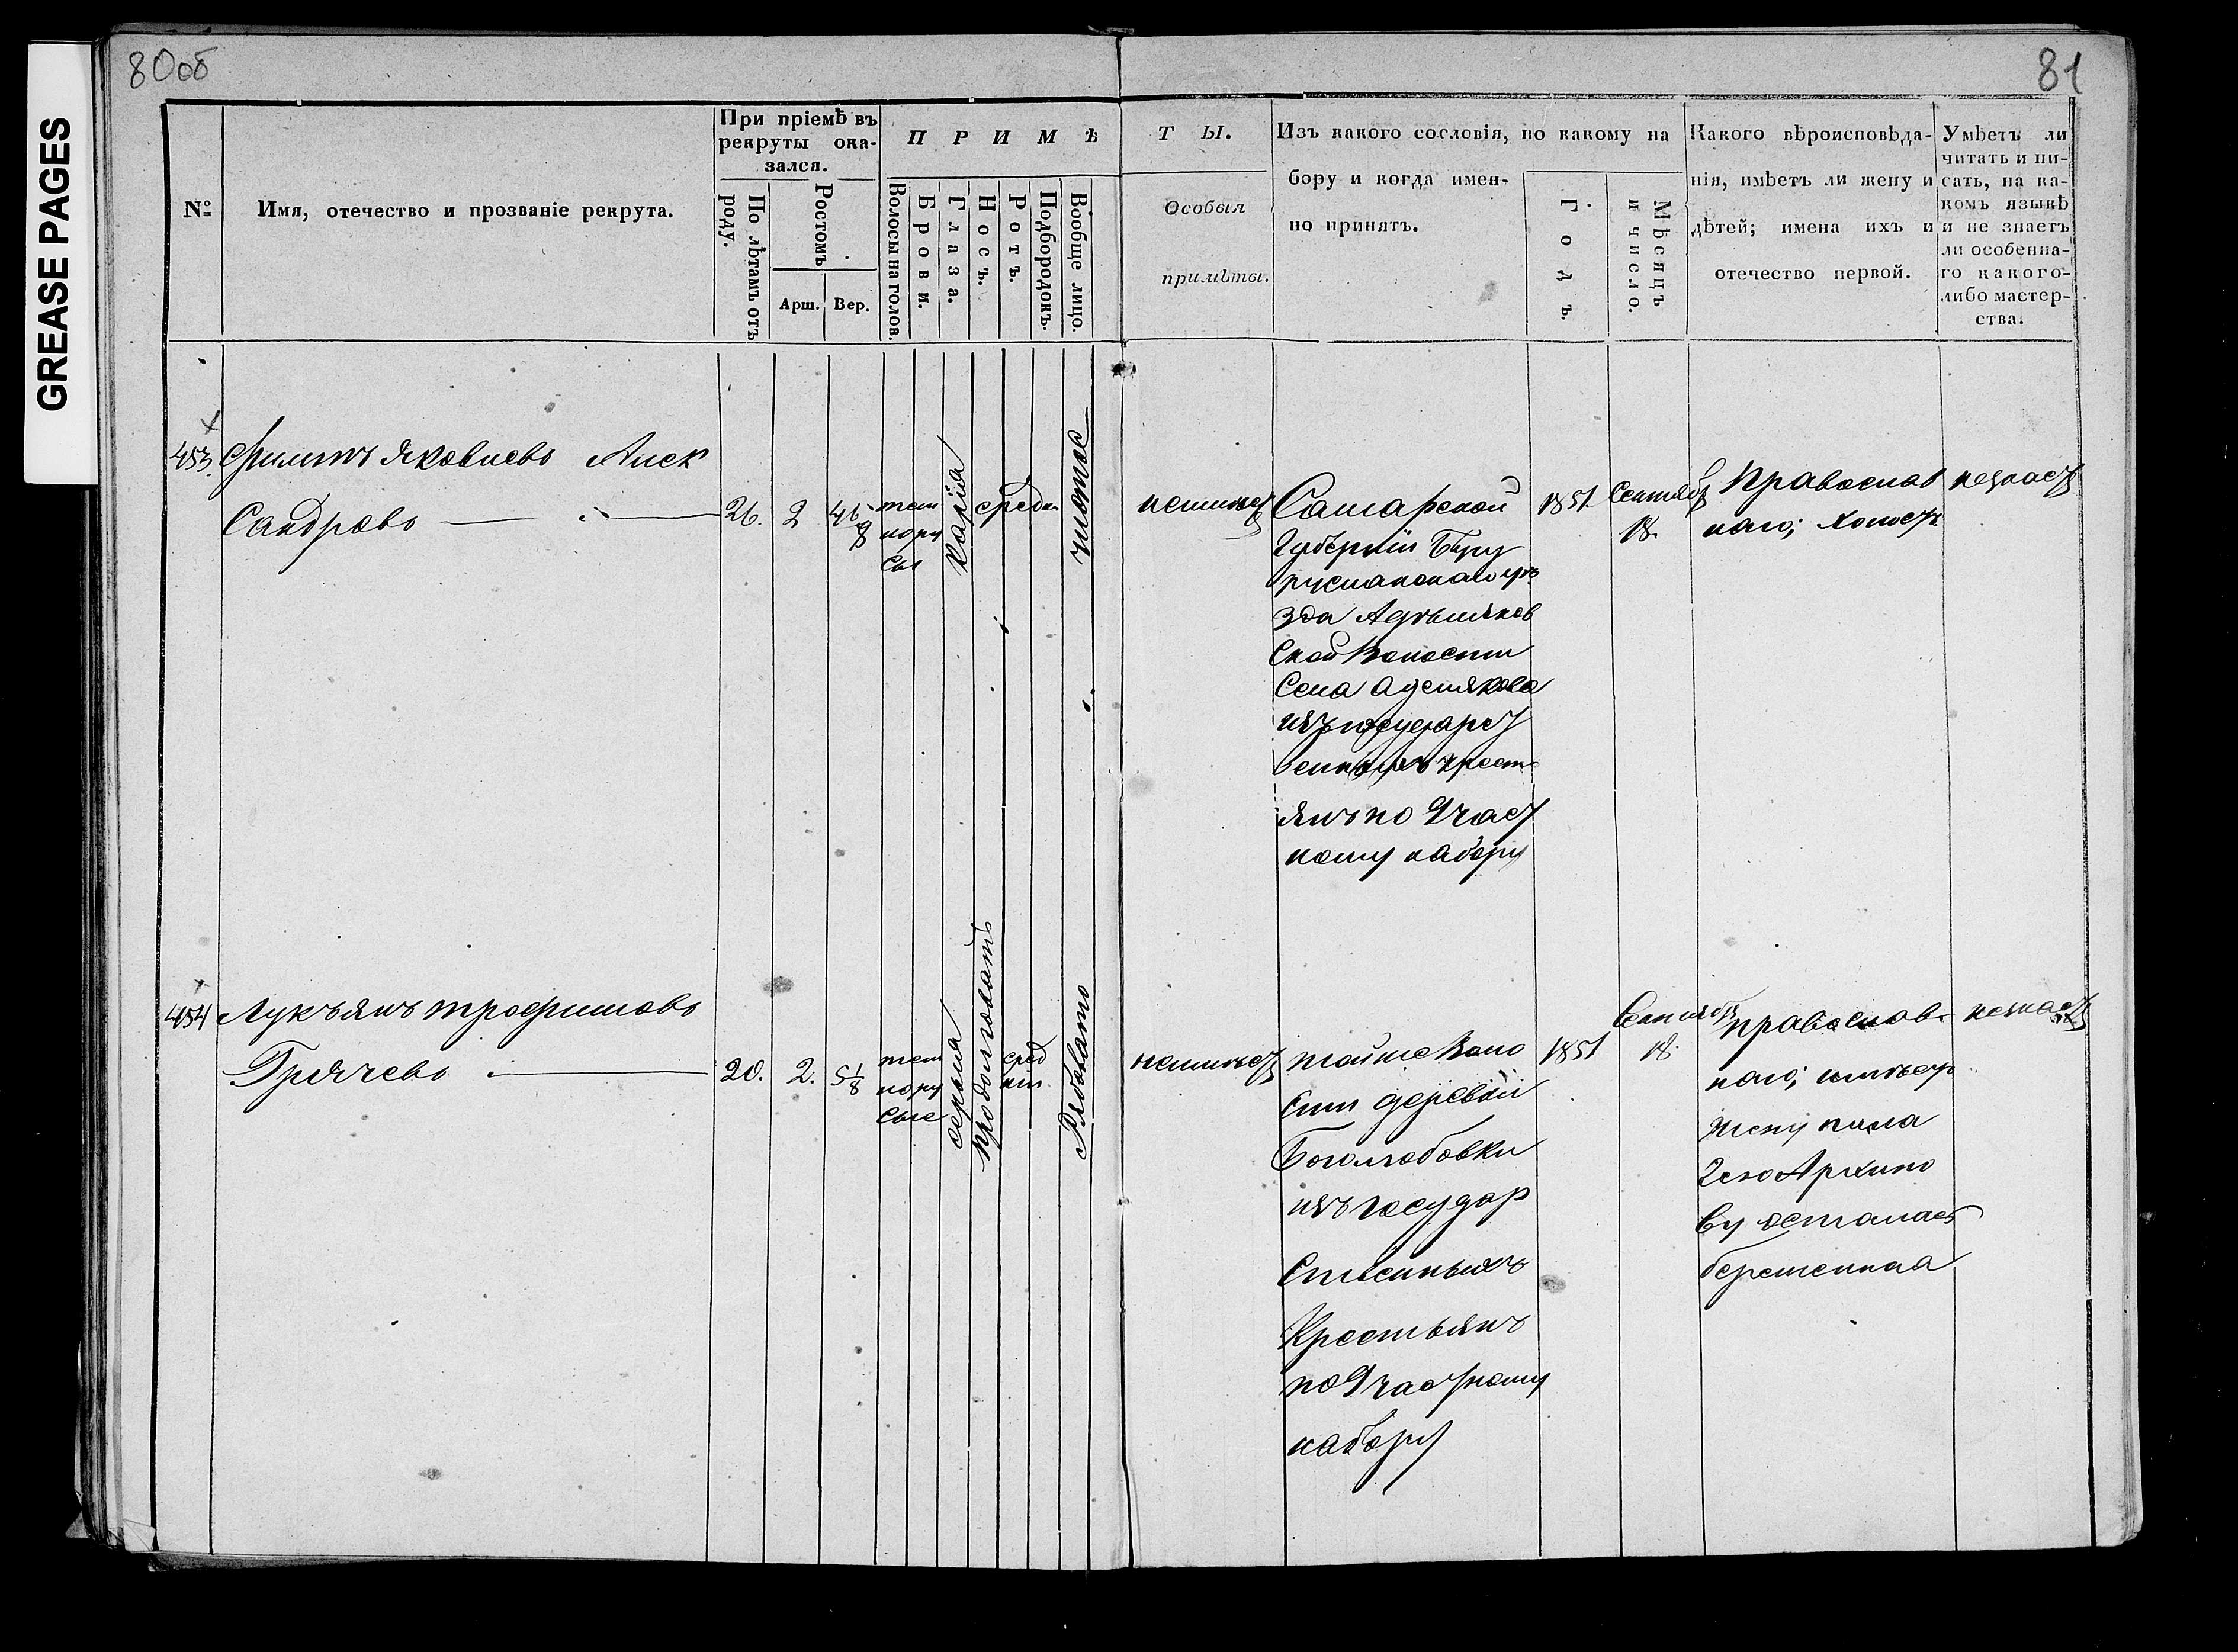 GREASE PAGES
80об
81
№
Имя, отечество и прозваніе рекрута.
При пріемѣ въ
рекруты ока-
зался.
По лѣтамъ отъ
роду.
Ростомъ
Арш.
Вер.
П Р И М Ѣ
Волосы на голов.
Брови.
Глаза.
Носъ.
Ротъ.
Подбородокъ.
Вообще лицо.
Т Ы.
Особыя
примѣты.
Изъ какого сословія, по какому на
бору и когда имен-
но принятъ.
Годъ.
Мѣсяцъ
и число.
Какого вѣроисповѣда-
нія, имѣетъ ли жену и
дѣтей; имена ихъ и
отечество первой.
Умѣетъ ли
читать и пи-
сать, на ка-
комъ языкѣ
и не знаетъ
ли особенна-
го какого-
либо мастер-
ства.
453. Филипъ Яковлевъ Алек
Сандровъ
26.
2
4 5/8
тем
нору
сы
Карія
средн
чистое
неимѣет
Самарской
Губерніи Бугу
русланскаго уѣ
зда Адѣляков
Ской Волости
Села Аделякова
изъ государст
венныхъ крест
янъ по 9 част
ному набору
1851
Сентябр
18.
Православ
наго; холост
незнает
454 Лукъянъ трофимовъ
Грячевъ
20.
2.
5 1/8
тем
нору
сые
серыя
продолговатъ
сред
ніи
Рябовато
неимѣет
тойже Воло
сти деревни
Боголюбовки
изъ государ
Ственныхъ
Крестьянъ
по 9 частному
набору
1851
Сентября
18.
православ-
наго; имѣетъ
жену пела
гею Архипо
ву осталась
беременная
незнает